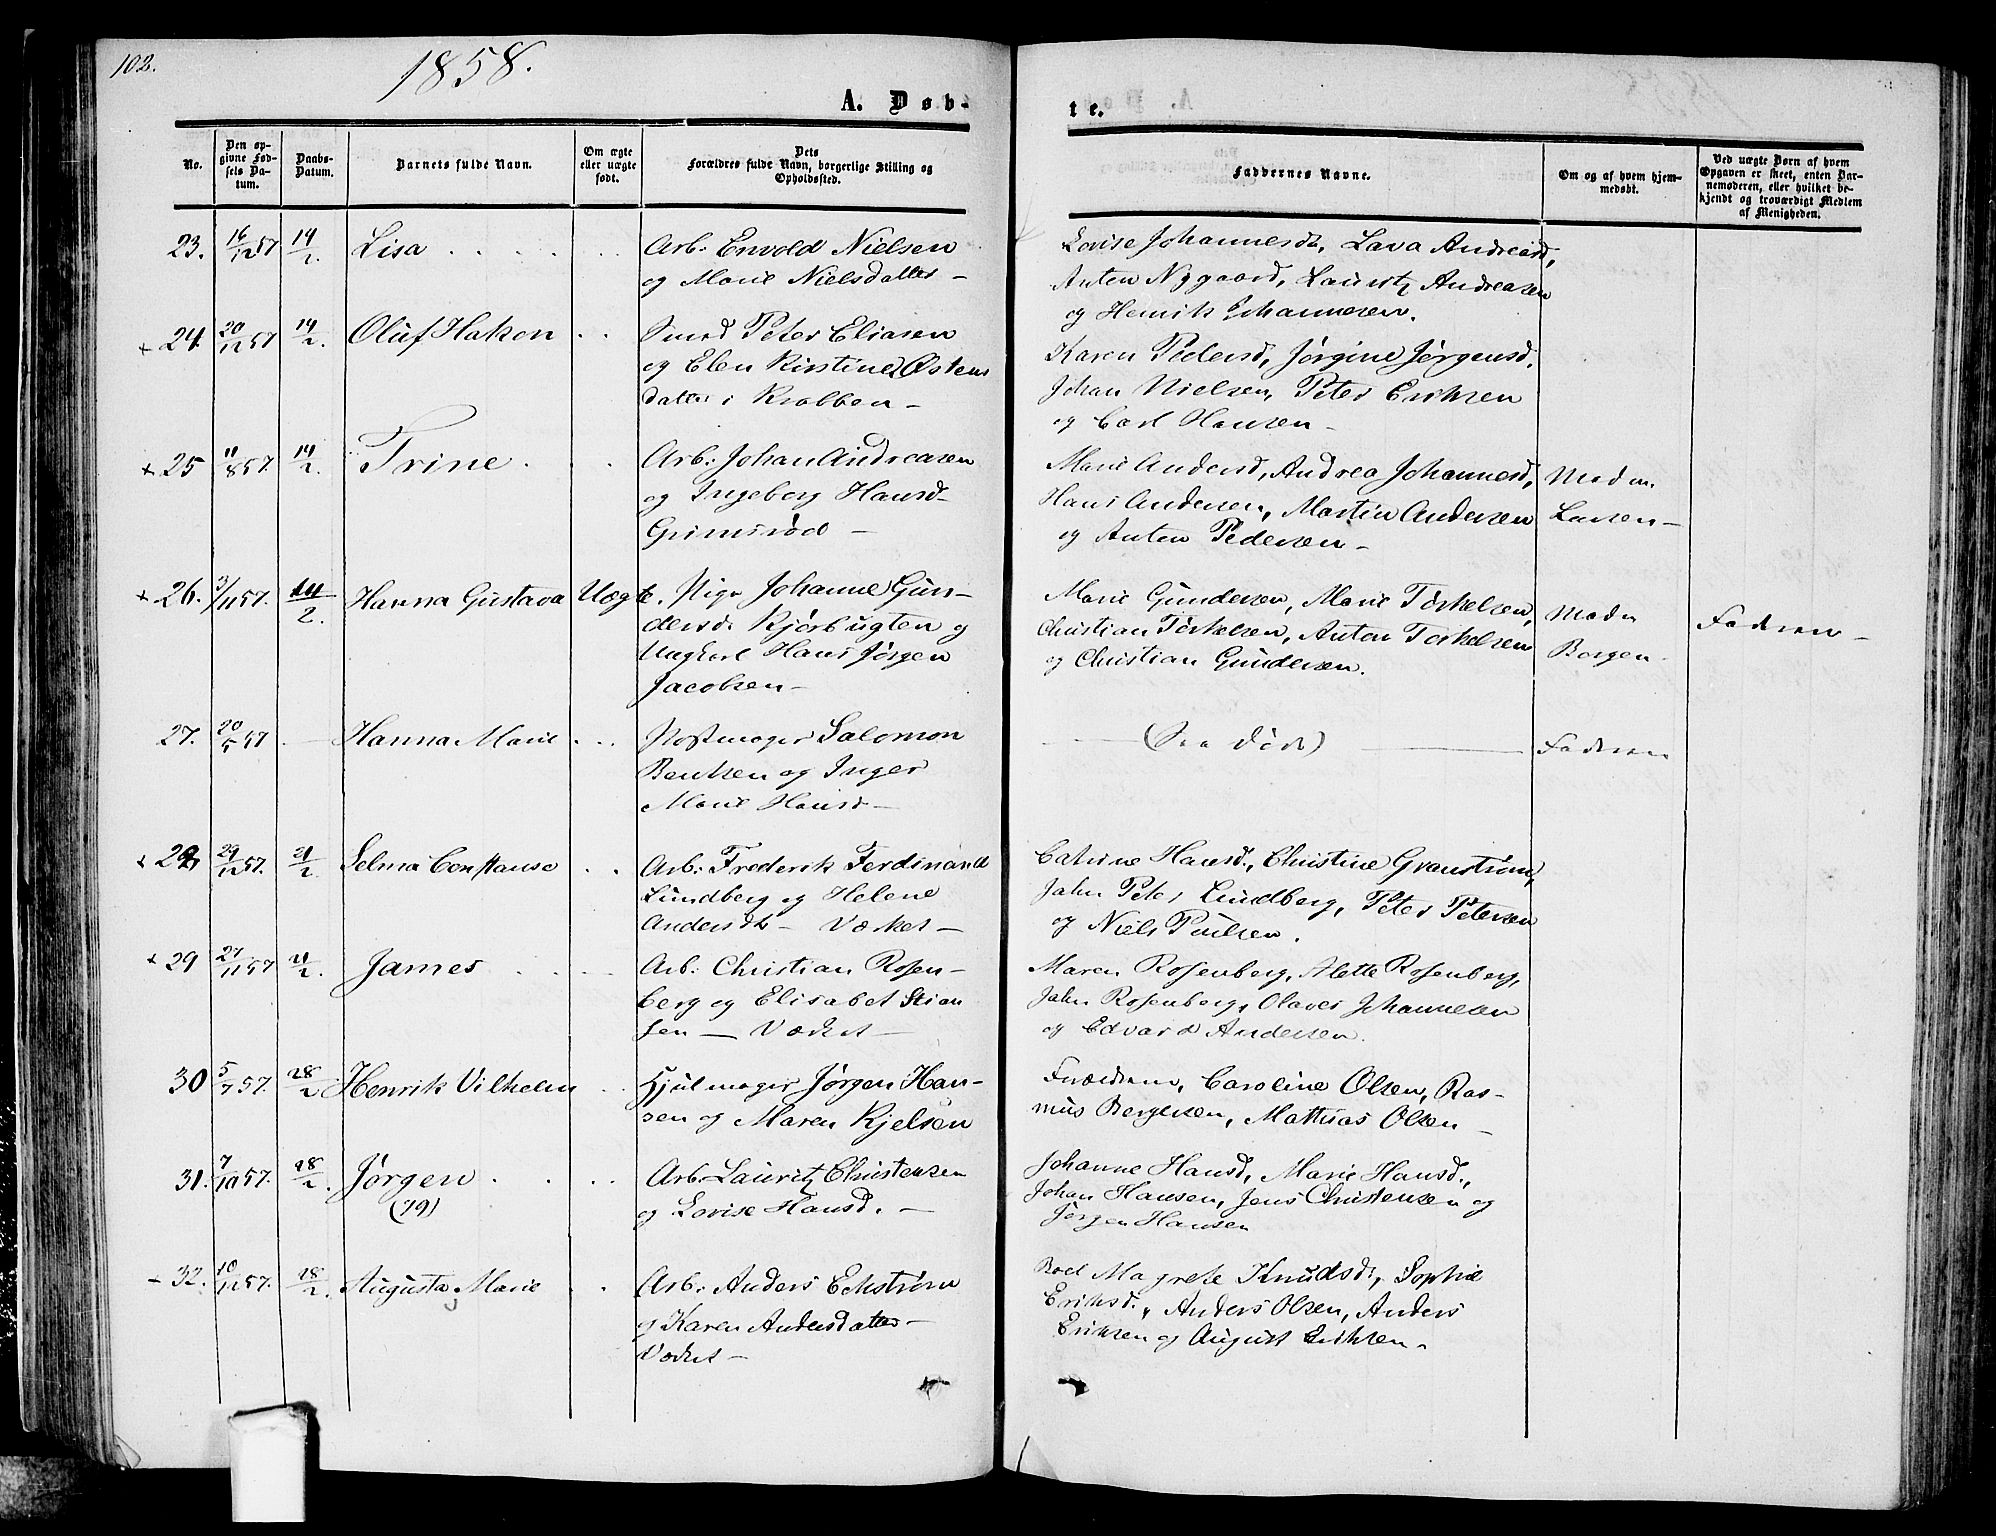 102.
1858.
A. Døb-
te.
No.
Den op-
givne Fød-
sels Da-
tum.
Daabs-
Datum.
Barnets fulde Navn.
Om ægte
eller uægte
født.
Dets
Forældres fulde Navn, borgerlige Stilling og
Opholdssted.
Faddernes Navne.
Om og af hvem hjem-
medøbt.
Ved uægte Børn af hvem
Opgaven er skeet, enten Bar-
nemoderen, eller hvilket be-
kjendt og troværdigt Medlem
af Menigheden.
23. 16/12 57 14/2 Lisa . . . . . . . Arb: Envold Nielsen
og Marie Nielsdatter –
Lovise Johannesd, Lava Andreasd,
Anten Nygaard, Lauritz Andreasen
og Henrik Johannesen.
+ 24. 20/12 57 14/2. Oluf Hakon . . Smed Peter Eliasen
og Elen Kirstine Østens
datter i Krabben –
Karen Pedersd, Jørgine Jørgensd.
Johan Nielsen, Peter Eriksen
og Carl Hansen –
+ 25 11/8 57. 14/2. Trine . . . Arb: Johan Andreasen
og Ingeborg Hansd–
Grimsrød –
Marie Andersd, Andrea Johannesd,
Hans Andersen, Martin Andersen
og Anton Pedersen –
Mad m.
Larsen –
+ 26. 3/11 57. 14/2. Hanna Gustava Uægte. Pige Johanne Gun-
dersd. Kjørbugten og
Ungkarl Hans Jørgen
Jacobsen –
Marie Gundersen, Marie Torkelsen,
Christian Torkelsen, Anton Torkelsen
og Christian Gundersen.
Mad m
Borgen
Faderen –
27. 20/5 57 – Hanna Marie . . . Salomon
Bentsen og Inger
Marie Hansd –
(See Døde)
Faderen
+ 28 29/12 57. 21/2. Selma Constanse . . Arb: Frederik Ferdinand
Lundberg og Helene
Andersdt – Værket –
Catrine Hansd., Christine Granstrøm,
John Peter Lundberg, Peter Petersen
og Niels Poulsen.
+ 29 27/11 57 21/2. James . . . . Arb: Christian Rosen-
berg og Elisabet Stian
sen – Værket –
Maren Rosenberg, Alette Rosenberg,
John Rosenberg, Olaves Johannesen
og Edvard Andersen.
30 5/7 57. 28/2 Henrik Vilhelm . . Hjulmager Jørgen Han-
sen og Maren Kjelsen
Forældrene, Caroline Olsen, Ras-
mus Bergersen, Mathias Olsen –
31. 7/10 57. 28/2. Jørgen . . . . Arb. Lauritz Christensen
(79)
og Lovise Hansd. –
Johanne Hansd, Marie Hansd.,
Johan Hansen, Jens Christensen og
Jørgen Hansen
– 32. 10/12 57. 28/2. Augusta Marie . . Arb: Anders Eckstrøm
og Karen Andersdatter –
Værket –
Boel Magrete Knudsd, Sophie
Eriksd., Anders Olsen, Anders
Eriksen og August Eriksen.